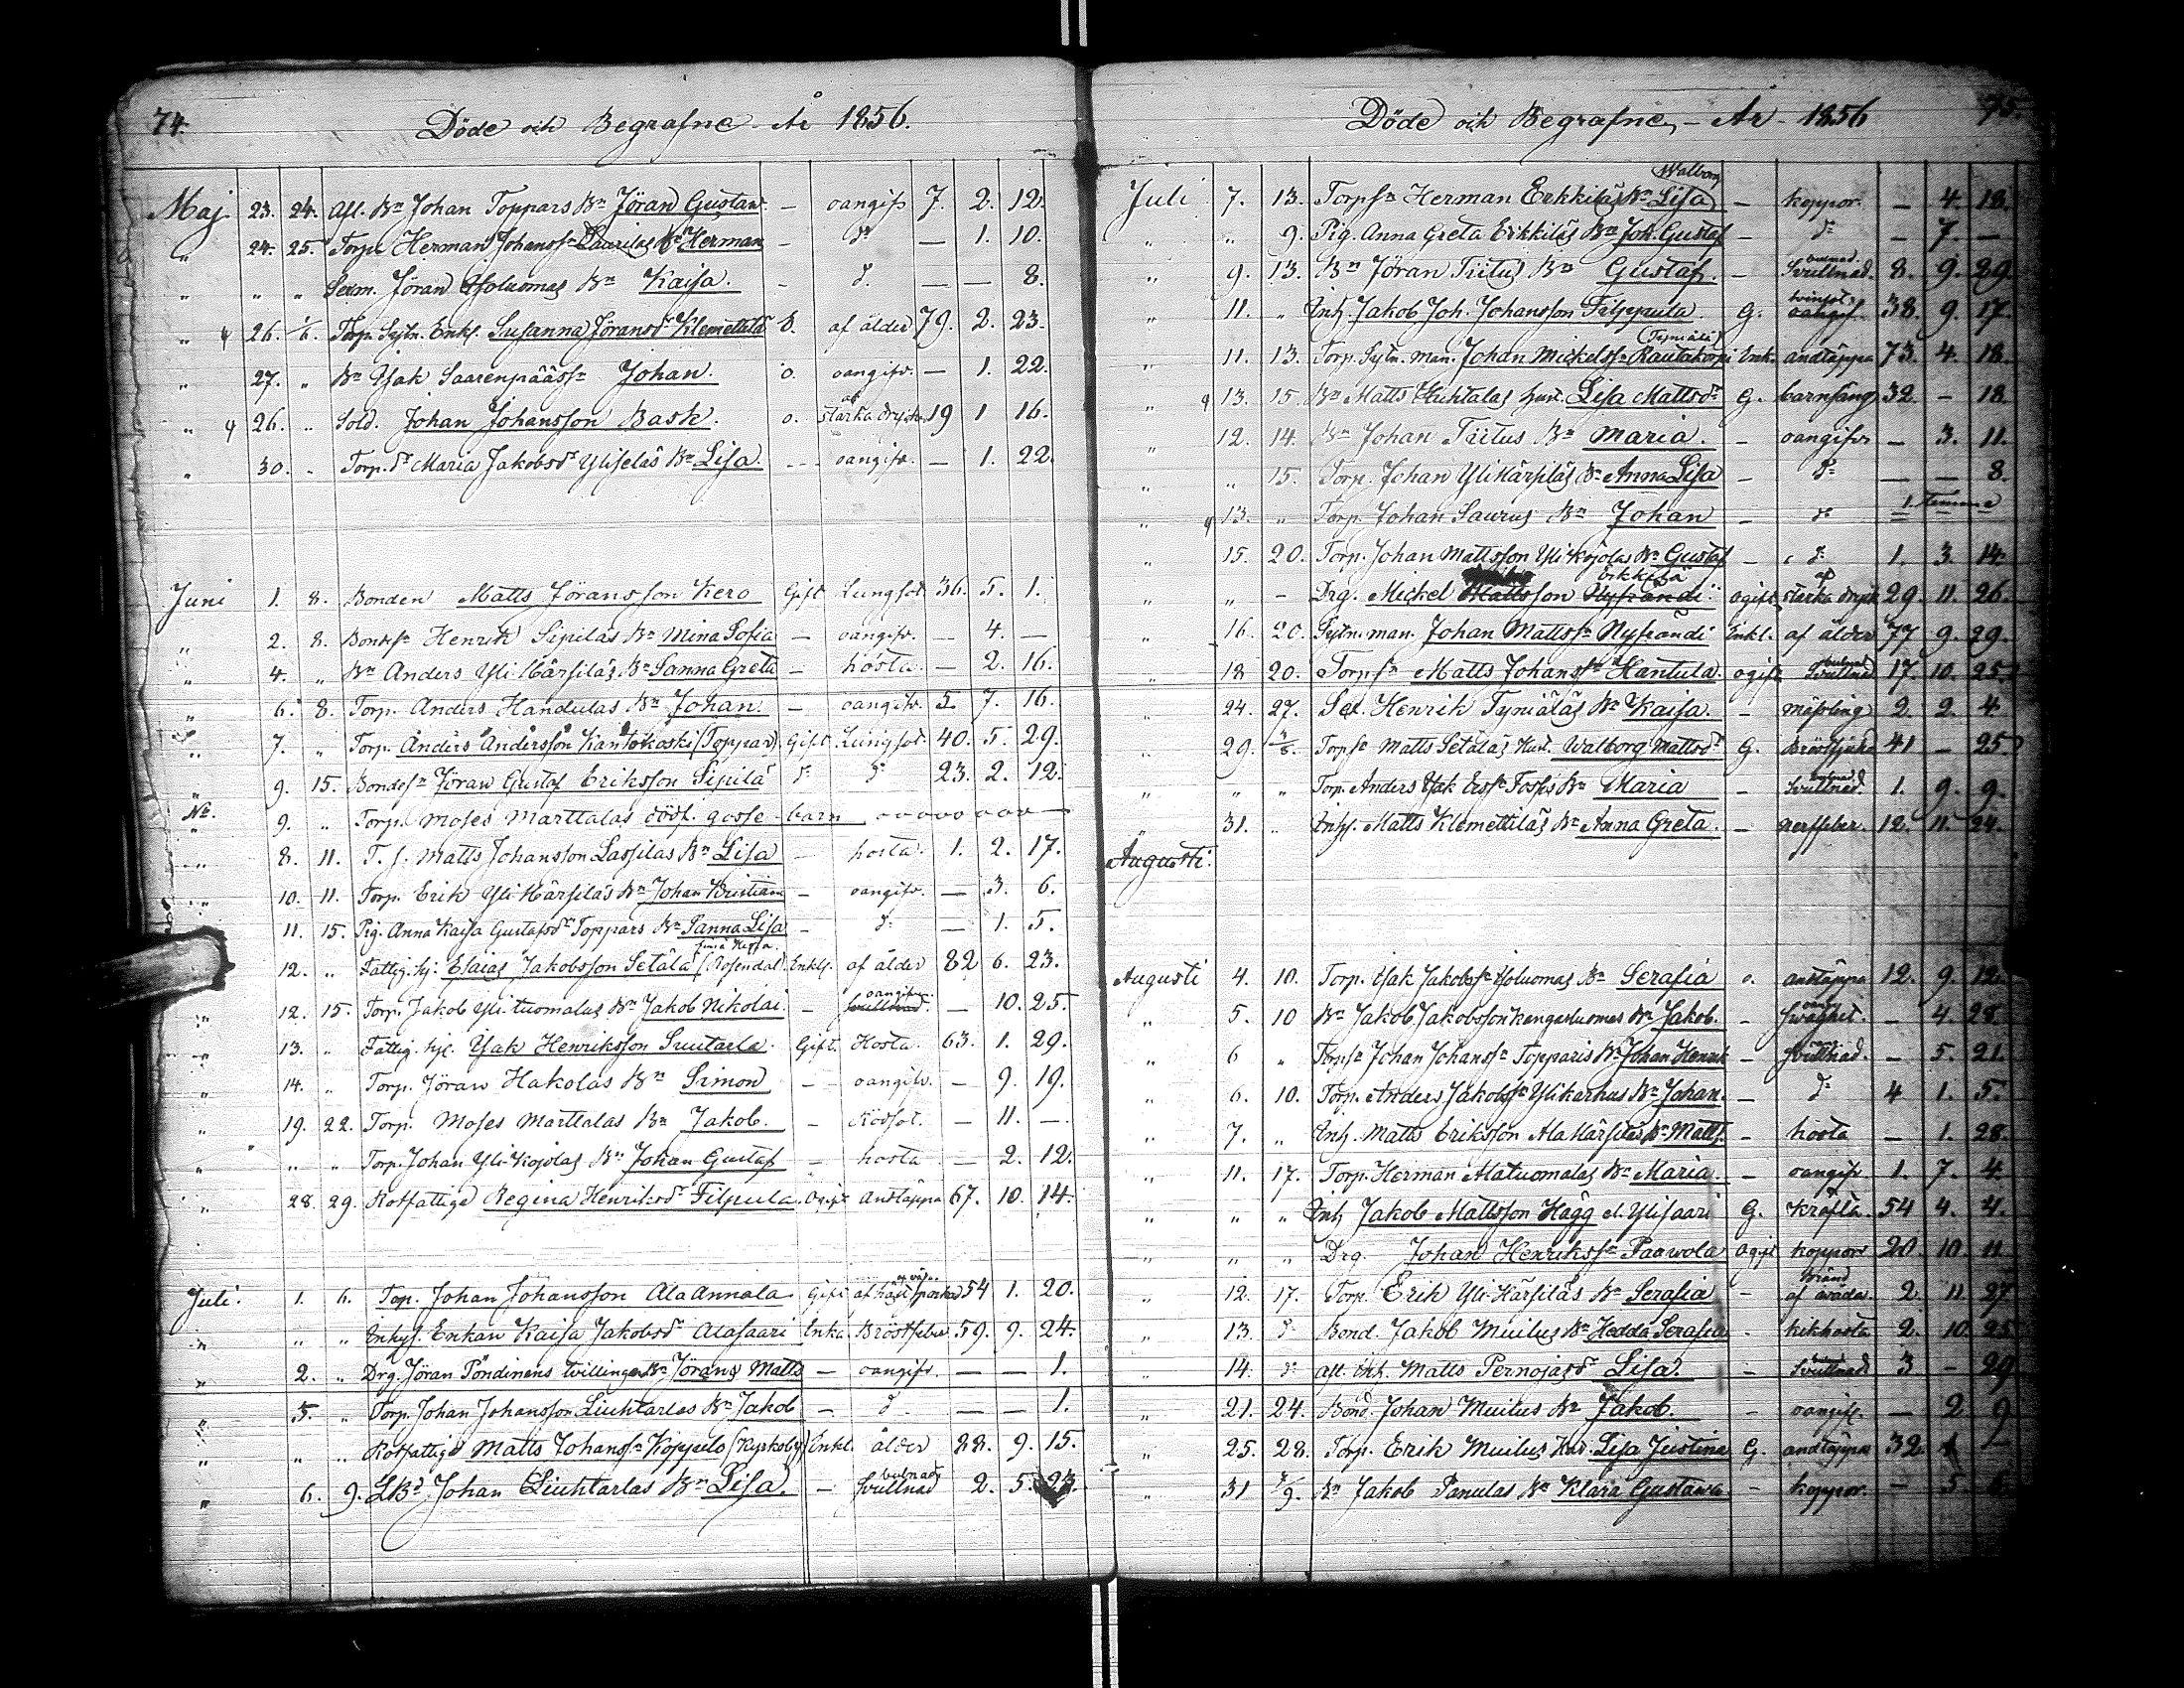 74.
Döde och Begrafne År 1856.
Maj 23. 24. Afl. Bn Johan Toppars Bn Jöran Gustaw. — oangifv 7. 2. 12.
" 24. 25. Torp. Herman Johanss: Laurilas Bn Herman — d:o — 1. 10.
" " " Jöran Isoluomas Bn Kaisa. — d:o — — 8.
" 26. 1/6. Torp. Sytn. Enkl. Susanna Joransd:r Klemettilä E. af ålder 79. 2. 23.
" 27. " Bn Isak Saarenpääs Johan. o. oangifv. — 1. 22.
" 26. " Sold. Johan Johansson Bask. o. af starka drycker 19 1 16.
" 30. " Torp. dr Maria Jakobsdr Yliseläs Bn Lisa. — oangifv. — 1. 22.
Juni 1. 8. Bonden Matts Jöransson Kero Gift Lungsot 36. 5. 1.
" 2. 8. Bondes: Henrik Sipiläs Bn Mina Sofia — oangifv. — 4. —
" 4. " Bn Anders Yli Kärsiläs Bn Sanna Greta — hosta. — 2. 16.
" 6. 8. Torp. Anders Handulas Bn Johan. — oangifv. 5. 7. 16.
" 7. " Torp. Anders Andersson Kantokoski (Toppar) Gift Lungsot 40. 5. 29.
" 9. 15. Bondes: Jöran Gustaf Eriksson Sipilä d:o d:o 23. 2. 12.
Nr. 9. " Torp. Moses Marttalas dödf. gosse-barn
" 8. 11. T. s. Matts Johansson Lassilas Bn Lisa — hosta. 1. 2. 17.
" 10. 11. Torp. Erik Yli Kärsiläs Bn Johan Kristian — oangifv. — 3. 6.
" 11. 15. Pig. Anna Kaisa Gustafsdr Toppars Bn Sanna Lisa — d:o — 1. 5.
" 12. " Fattig. hj. Esaias Jakobsson Setälä (Rosendal) Enkl. af ålder 82 6. 23.
" 12. 15. Torp. Jakob Yli-tuomalas Bn Jakob Nikolai. — oangifv. — 10. 25.
" 13. " Fattig. hjl. Isak Henriksson Suutarla. Gift. Hosta. 63. 1. 29.
" 14. " Torp. Jöran Hakolas Bn Simon — oangifv. — 9. 19.
" 19. 22. Torp. Moses Marttalas Bn Jakob. — Rödsot. — 11. —
" " " Torp. Johan Yli-Kojolas Bn Johan Gustaf — hosta — 2. 12.
" 28. 29. Rotfattige Regina Henriksdr Filpula. Ogift Andtäppa 67. 10. 14.
Juli. 1. 6. Top. Johan Johansson Ala Annala Gift af häst sparkad 54 1. 20.
" " " Inhys. Enkan Kaisa Jakobsdr Alasaari Enka Bröstfeber 59. 9. 24.
" 2. " Drg. Jöran Pöndinens tvillingar Bn Jöran & Matts — oangifv. — — 1.
" 5. " Torp. Johan Johansson Liuhtarlas Bn Jakob — d:o — — 1.
" " " Rotfattige Matts Johans: Koppelo (Kyrkoby) Enkl. ålder 88. 9. 15.
" 6. 9. Johan Liuhtarlas Bn Lisa. — svullnad 2. 5. 23.
75.
Döde och Begrafne, — År — 1856
Walborg
Juli 7. 13. Torps:n Herman Erkkiläs Bn Lisa — koppor. — 4. 18.
" " 9. Pig. Anna Greta Erkkiläs Bn Joh. Gustaf — d:o — 7. —
" 9. 13. Bn Jöran Tiitus Bn Gustaf. — Svullnad. 8. 9. 29.
" 11. " Inh. Jakob Joh. Johansson Filppula. G. oangif. 38. 9. 17.
" 11. 13. Torp. Sytn. man. Johan Mickelss: Rautakorpi Enk. andtäppa 73. 4. 18.
" 13. 15. Bn Matts Huhtalas hust. Lisa Mattsdr G. barnsäng 32. — 18.
" 12. 14. Bn Johan Tiitus Bn Maria. — oangifv — 3. 11.
" " 15. Torp. Johan Yli Kärsiläs Bn Anna Lisa — d:o — — 8.
" 13. " Torp. Johan Saurus Bn Johan — d:o 1. timme
" 15. 20. Torp. Johan Mattsson Yli-Kojolas Bn Gustaf — d:o 1. 3. 14.
" " — Drg. Mickel Mattsson Erkkilä ogift af starka dryck. 29. 11. 26.
" 16. 20. Sytn. man. Johan Mattss: Nyfrändi Enkl. af ålder 77 9. 29.
" 18 20. Torps:n Matts Johanss:n Hantula. ogift Svullnad 17. 10. 25.
" 24. 27. Henrik Tyniäläs Bn Kaisa. — mässling 2. 2. 4.
" 29. 3/8. Torps: Matts Setäläs Hust. Walborg Mattsdr G. Bröstsjuka 41 — 25.
" " " Torp. Anders Isak Erss: Bn Maria — Svullnad. 1. 9. 9.
" 31. " Inhs. Matts Klemettiläs Bn Anna Greta. — nerffeber. 12. 11. 24.
Augusti.
Augusti 4. 10. Torp. Isak Jakobss: Isoluomas Bn Serafia o. andtäppa 12. 9. 12.
" 5. 10 Bn Jakob Jakobsson Kengasluomas Bn Jakob. — Swaghet. — 4. 28.
" 6 " Torps: Johan Johanss: Topparis Bn Johan Henrik — svullnad. — 5. 21.
" 6. 10. Torp. Anders Jakobss: Ylikarhus Bn Johan. — d:o 4 1. 5.
" 7. " Inh. Matts Eriksson Ala Kärsiläs Bn Matts. — hosta — 1. 28.
" 11. 17. Torp. Herman Alatuomalas Bn Maria. — oangifv. 1. 7. 4.
" " " Inh Jakob Mattsson Hägg el. Ylisaari G. Kräfta. 54 4. 4.
" " " Drg. Johan Henrikss:n Paawola Ogift koppor 20. 10. 11
" 12. 17. Torp. Erik Yli-Kärsiläs Bn Serafia — Bränd af wåda. 2. 11. 27.
" 13. d:o Bond. Jakob Muilus Bn Hedda Serafia — kikhosta 2. 10. 25.
" 14. d:o afl. Inh. Matts Pernojas dr Lisa. — Svullnad. 3 — 29
" 21. 24. Bond. Johan Muilus Bn Jakob. — oangif. — 2 9
" 25. 28. Torp. Erik Muilus Hus. Lisa Justina G. andtäppa 32. —
" 31 7/9. Bn Jakob Panulas Bn Klara Gustawa — koppor. — 5. 6.